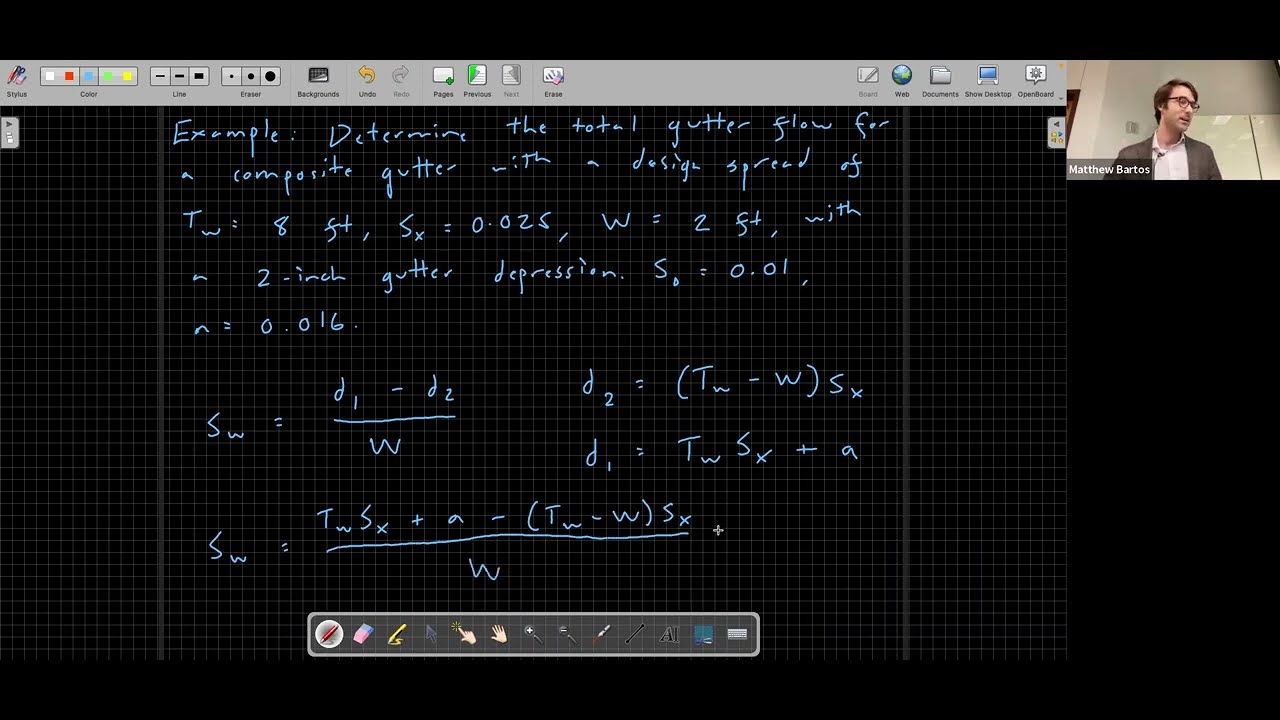 Stylus Color Line Eraser Backgrounds Undo Redo Pages Previous Next Erase Board Web Documents Show Desktop OpenBoard
Matthew Bartos
Example: Determine the total gutter flow for
a composite gutter with a design spread of
T_w = 8 ft, S_x = 0.025, W = 2 ft, with
a 2-inch gutter depression. S_0 = 0.01,
n = 0.016.
S_w = (d_1 - d_2) / W
d_2 = (T_w - W) S_x
d_1 = T_w S_x + a
S_w = (T_w S_x + a - (T_w - W) S_x) / W